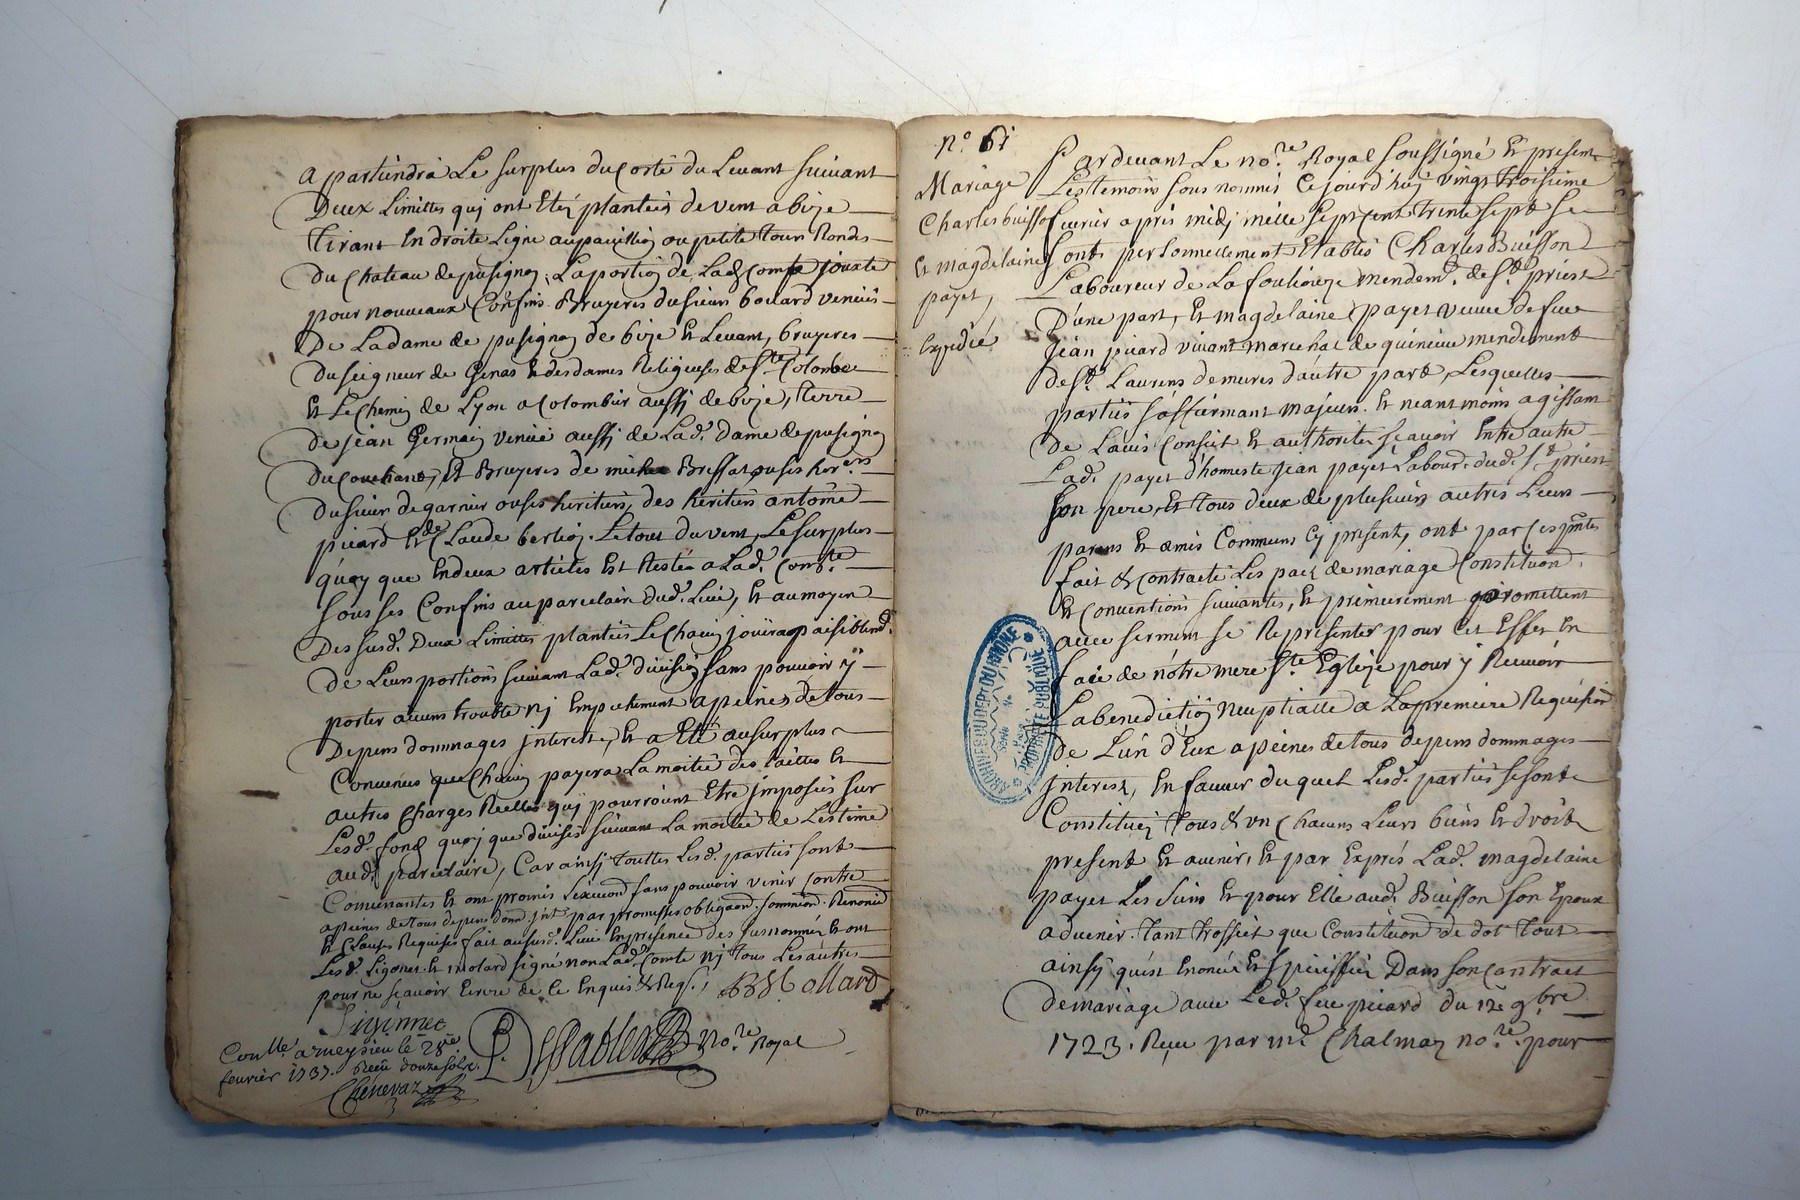 apartiendra Le surplus du Coté du Levant suivant
Deux Limittes quj ont Etéz plantéés de vent a bize
tirant En droite Ligne au pavillion ou petite tour Ronde
Du Chateau de pusignan, La portion de Lad Comte jouxte
pour nouveaux Confins Bruyeres du sieur boüard venües
De La dame de pusignan de bize Et Levant, bruyeres
Du seigneur de Genas Et des dames Religieuses de Ste Colombe
Et Le Chemin de Lyon a Colombier aussj de bize, terre
de jean Germain venüe aussj de Lad. dame de pusignan
Du Couchant, Et Bruyeres de michel Bressat ou ses her.ers
Du sieur de garnier ou ses heritiers, des heritiers antoine
picard Et de Claude berlioz. Le tout du vent, Le surplus
quoy que En deux articles Est Resté a Lad. Comte
sous ses Confins au parcelaire dud. Lieu, Et au moyen
Des susd. Deux Limittes plantéés Le Chacun joüira paisiblemt.
de Leurs portions suivant Lad. division sans pouvoir ÿ
porter aucuns trouble nj Empechement a peines de tous
Depens dommages jnterest, Et a Eté au surplus
Convenus que Chacun payera La moitié des tailles Et
autres Charges Reelles quj pourroient Etre jmposés sur
Lesd. fond quoj que divisés suivant La moitié de L'estime
aud. parcelaire, Car ainsj touttes Lesd. parties sont
Convenantes Et ont promis sans pouvoir venir Contre
a peines de tous depens dom. jnt. par promesses obligaon. soummion. Renonion
Et Clauses Requises fait au susd. Lieu En presence des susnommés Et ont
Lesd. Ligonet Et molard signé non Lad. Comte nj tous Les autres
pour ne sçavoir Ecrire de Ce Enquis & Reqs.,
Ligonnet
No.re Royal
Conlle. a meysieu le 28me
fevrier 1737. Receu douze sols.
Chenevaz
N.o 61
Mariage
Charles buisson
Et magdelaine
payet,
Expedié
Par devant Le no.re Royal soussigné Et present
Les temoins sous nommés Ce jourd'huj vingt troisieme
fevrier apres midj mille sept Cent trente sept se
sont personnellement Etablis Charles Buisson
Laboureur de La fouliouze mendemt. de St. priest
D'une part, Et magdelaine payet veuve de feu
jean picard vivant marechal de quinieu mendement
de St. Laurens de mures d'autre part, Lesquelles
parties s'affirmant majeurs. Et neantmoins agissant
De L'avis Conseil Et authorité sçavoir Entre autre
Lad. payet d'honneste jean payet Labour. dud. St. priest
son pere, Et tous deux de plusieurs autres Leurs
parens Et amis Communs Cy present, ont par Ces pntes
fait & Contracté Les pact de mariage Constituon.
Et Conventions suivantes, Et premierement promettent
avec serment se Representer pour Cet Effet En
face de nôtre mere Ste. Eglize pour ÿ Recevoir
La benediction Nuptialle a La premiere Requisition
De L'un d'Eux a peines de tous depens dommages
jnterest, En faveur duquel Lesd. parties se sont
Constituéz tous & un Chacuns Leurs biens Et droits
present Et avenir, Et par Exprés Lad. magdelaine
payet Les siens Et pour Elle aud. Buisson son Epoux
advenir. tant troffiet que Constituon de dot tout
ainsÿ qu'est Enoncé Et spéciffié Dans son Contract
de mariage avec Led. feu picard du 12e 9bre
1723. Reçu par me. Chalmaz no.re. pour
ARCHIVES DU DEPT DU RHONE
PROPRIETE PUBLIQUE